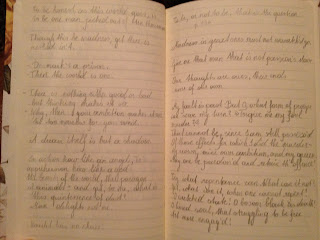 To be honest as this world goes, is
to be one man picked out of ten thousand
Though this be madness, yet there is
method in't.
Denmark's a prison.
Then the world is one.
There is nothing either good or bad
but thinking makes it so.
Why, then your ambition makes it one
'tis too narrow for your mind.
A dream itself is but a shadow.
In action how like an angel, in
apprehension how like a god!
The beauty of the world, the paragon
of animals - and yet, to me, what is
this quintessence of dust?
Man delights not me
To be, or not to be, that is the question
Madness in great ones must not unwatch'd go.
Give me that man that is not passion's slave
Our thoughts are ours, their ends
none of our own
My fault is past. But O, what form of prayer
Can serve my turn? Forgive me my foul
murder?
That cannot be, since I am still possess'd
Of those effects for which I did the murder
My crown, mine own ambition, and my queen
May one be pardon'd and retain the offence?
Try what repentance can. What can it not?
Yet what can it, when one cannot repent?
O wretched state! O bosom black as death!
O limed soul, that struggling to be free
Art more engag'd!